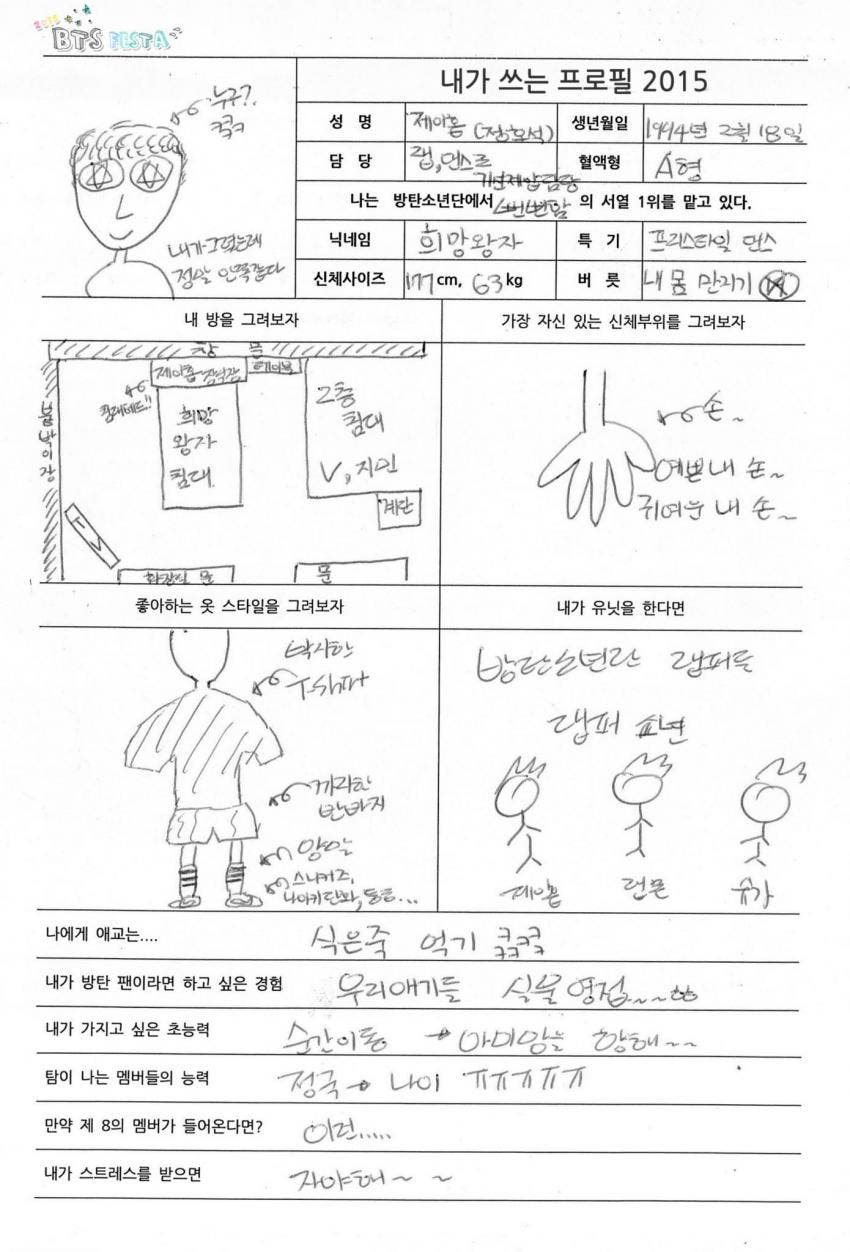 2015
BTS FESTA
내가 쓰는 프로필 2015
누구?
ㅋㅋㅋ
내가그렸는데
정말 안똑같다
성 명 제이홉 (정호석) 생년월일 1994년 2월 18일
담 당 랩, 댄스 혈액형 A형
나는 방탄소년단에서 의 서열 1위를 맡고 있다.
닉네임 희망왕자 특 기 프리스타일 댄스
신체사이즈 177cm, 63kg 버 릇 내 몸 만지기
내 방을 그려보자
창 문
제이홉
테이블
붙박이장
희망
왕자
침대
2층
침대
V, 지민
계단
TV
화장실 문
문
가장 자신 있는 신체부위를 그려보자
손~
예쁜 내 손~
귀여운 내 손~
좋아하는 옷 스타일을 그려보자
박시한
T-shirt
반바지
양말
스니커즈,
나이키 단화, 등등...
내가 유닛을 한다면
방탄소년단 랩퍼들
랩퍼 소년
제이홉
랩몬
슈가
나에게 애교는.... 식은죽 먹기 ㅋㅋㅋㅋㅋㅋ
내가 방탄 팬이라면 하고 싶은 경험 우리애기들 실물영접~~
내가 가지고 싶은 초능력 순간이동 → 아미맘을 향해~~
탐이 나는 멤버들의 능력 정국 → 나이 ㅠㅠㅠㅠㅠ
만약 제 8의 멤버가 들어온다면? 이런.....
내가 스트레스를 받으면 자야해~ ~